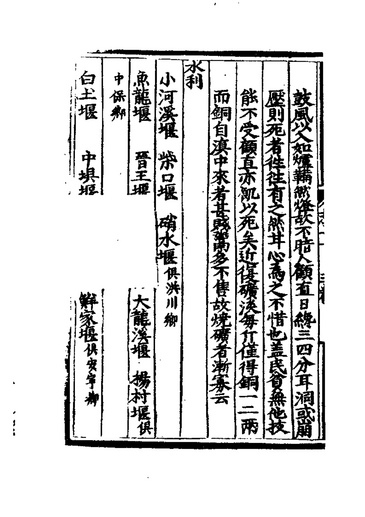 鼓風以入如爐韛然燈故不暗人顧直日緣三四分耳洞或崩
壓則死者徃徃有之然甘心為之不惜也盖民貧無他技
能不受顧直亦飢以死矣近復礦淺每斤僅得銅一二兩
而銅自滇中來者甚賤多不售故燒礦者漸寡云
水利
小河溪堰 柴口堰 硝水堰俱洪川鄉
魚龍堰 晉王堰 大龍溪堰 楊村堰俱
中保鄉
白土堰 中垻堰 鮮家堰俱安寧鄉